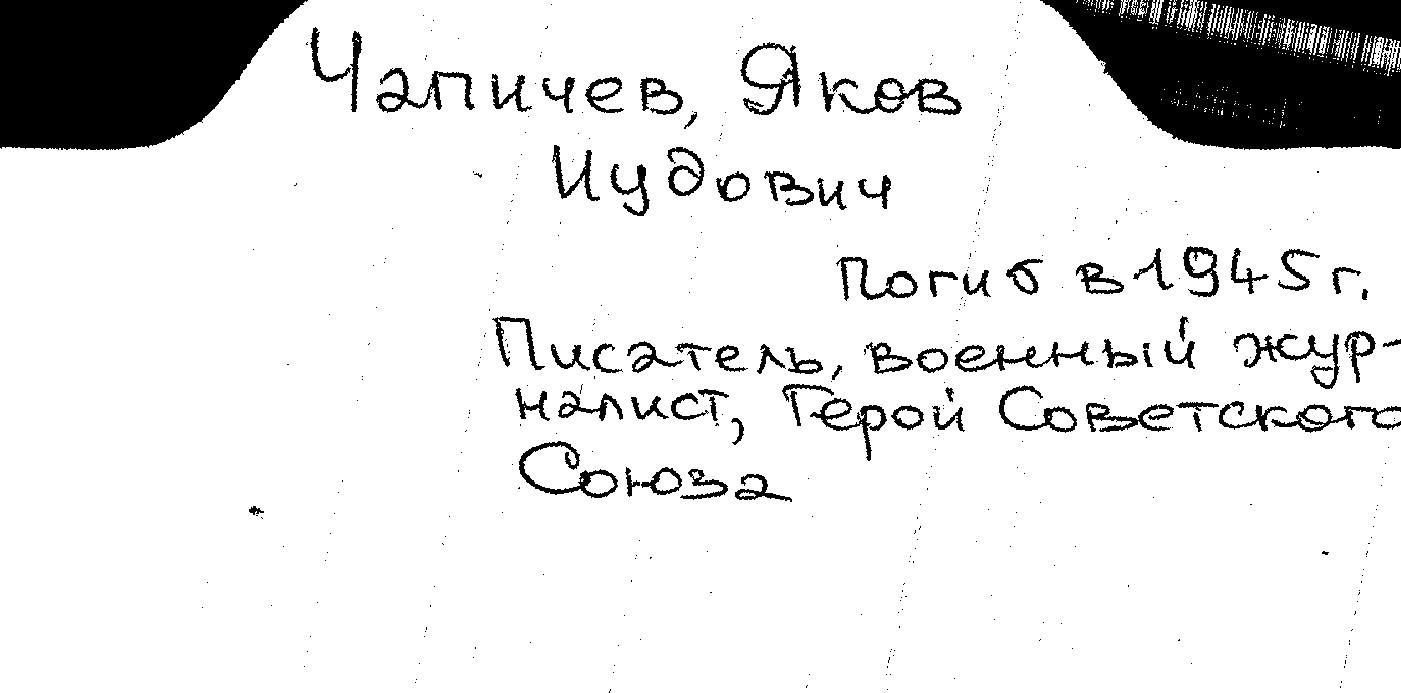 Чапичев, Яков
Иудович
погиб в 1945 г.
Писатель, военный жур-
налист, Герой Советского
Союза